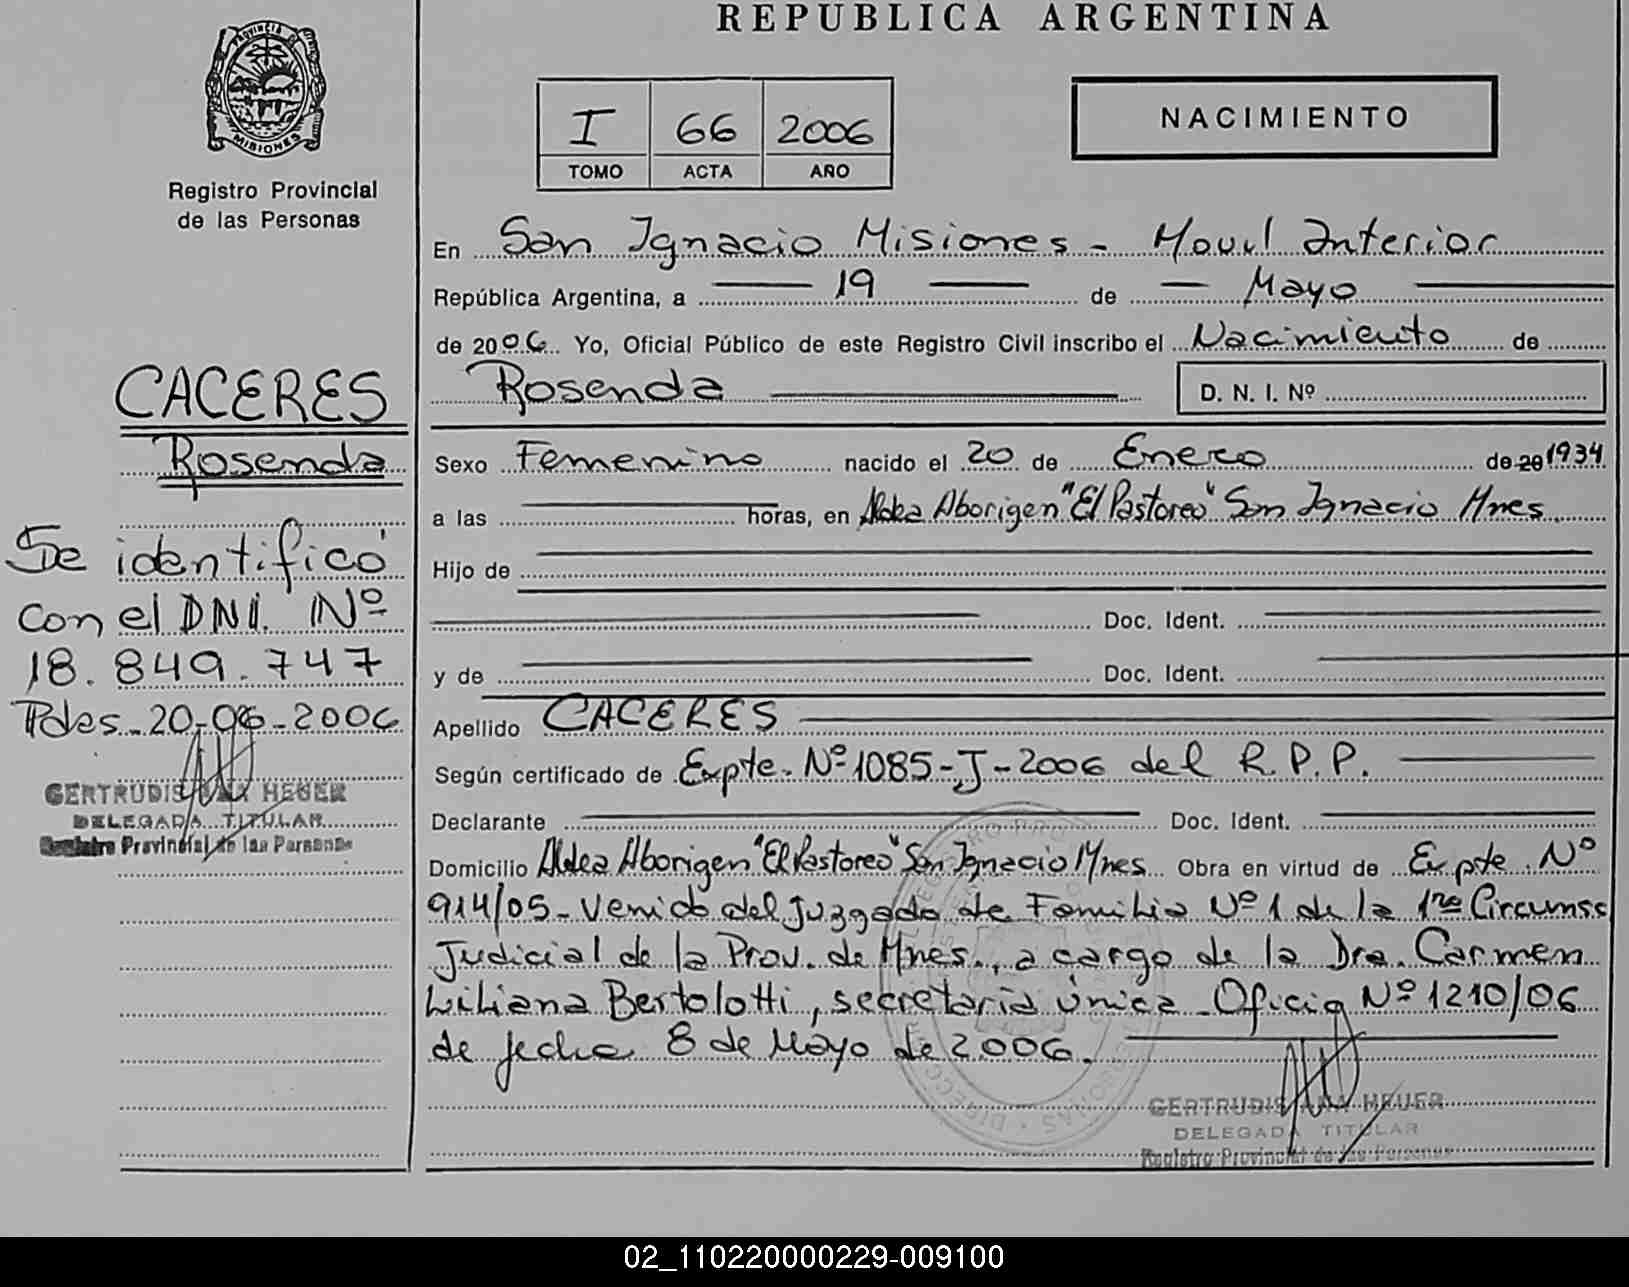 REPUBLICA ARGENTINA
PROVINCIA DE
MISIONES
Registro Provincial
de las Personas
I 66 2006
TOMO ACTA AÑO
NACIMIENTO
En San Ignacio Misiones - Movil Interior
República Argentina, a 19 de Mayo
de 2006 Yo, Oficial Público de este Registro Civil inscribo el Nacimiento de
Rosenda D. N. I. Nº
Sexo Femenino nacido el 20 de Enero de 20 1934
a las horas, en Aldea Aborigen "El Pastoreo" San Ignacio Mnes
Hijo de
Doc. Ident.
y de Doc. Ident.
Apellido CACERES
Según certificado de Expte. Nº 1085-J-2006 del R.P.P.
Declarante Doc. Ident.
Domicilio Aldea Aborigen "El Pastoreo" San Ignacio Mnes Obra en virtud de Expte. Nº
914/05 - Venido del Juzgado de Familia Nº 1 de la 1ra Circunsc
Judicial de la Prov. de Mnes., a cargo de la Dra. Carmen
Liliana Bertolotti, secretaria única - Oficio Nº 1210/06
de fecha 8 de Mayo de 2006.
GERTRUDIS ANA HEUER
DELEGADA TITULAR
Registro Provincial de las Personas
CACERES
Rosenda
Se identificó
con el DNI. Nº
18.849.747
Pdas. 20-06-2006
GERTRUDIS ANA HEUER
DELEGADA TITULAR
Registro Provincial de las Personas
02_110220000229-009100